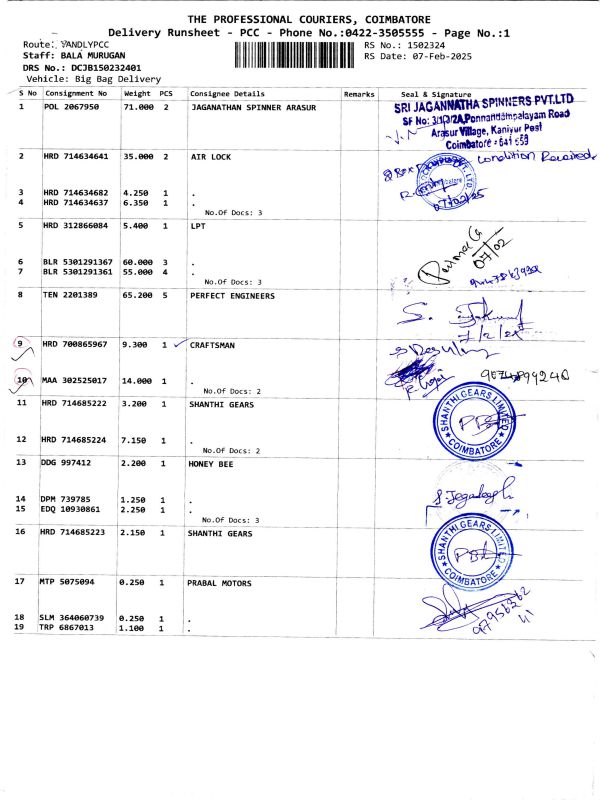 THE PROFESSIONAL COURIERS, COIMBATORE
Delivery Runsheet - PCC - Phone No.:0422-3505555 - Page No.:1
Route: VANDLYPCC
RS No.: 1502324
Staff: BALA MURUGAN
RS Date: 07-Feb-2025
DRS No.: DCJB150232401
Vehicle: Big Bag Delivery
S No Consignment No Weight PCS Consignee Details Remarks Seal & Signature
1 POL 2067950 71.000 2 JAGANATHAN SPINNER ARASUR
SRI JAGANNATHA SPINNERS PVT.LTD
SF No: 3/1/3/2A,Ponnandampalayam Road
Arasur Village, Kaniyur Post
Coimbatore - 641 659
2 HRD 714634641 35.000 2 AIR LOCK
condition Received
3 HRD 714634682 4.250 1 .
4 HRD 714634637 6.350 1 .
07/02/25
No.Of Docs: 3
5 HRD 312866084 5.400 1 LPT
07/02
6 BLR 5301291367 60.000 3 .
7 BLR 5301291361 55.000 4 .
No.Of Docs: 3
8 TEN 2201389 65.200 5 PERFECT ENGINEERS
7/2/25
9 HRD 700865967 9.300 1 CRAFTSMAN
10 MAA 302525017 14.000 1 .
No.Of Docs: 2
11 HRD 714685222 3.200 1 SHANTHI GEARS
SHANTHI GEARS LIMITED
COIMBATORE
12 HRD 714685224 7.150 1 .
No.Of Docs: 2
13 DDG 997412 2.200 1 HONEY BEE
14 DPM 739785 1.250 1 .
15 EDQ 10930861 2.250 1 .
No.Of Docs: 3
16 HRD 714685223 2.150 1 SHANTHI GEARS
SHANTHI GEARS LIMITED
COIMBATORE
17 MTP 5075094 0.250 1 PRABAL MOTORS
18 SLM 364060739 0.250 1 .
19 TRP 6867013 1.100 1 .